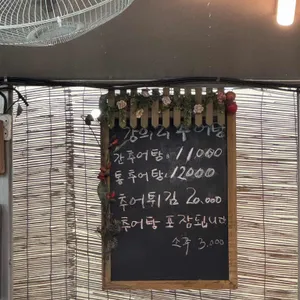 강의리 추어탕
간추어탕: 11,000
통추어탕: 12000
추어튀김 20,000
추어탕 포장됩니다
소주 3,000